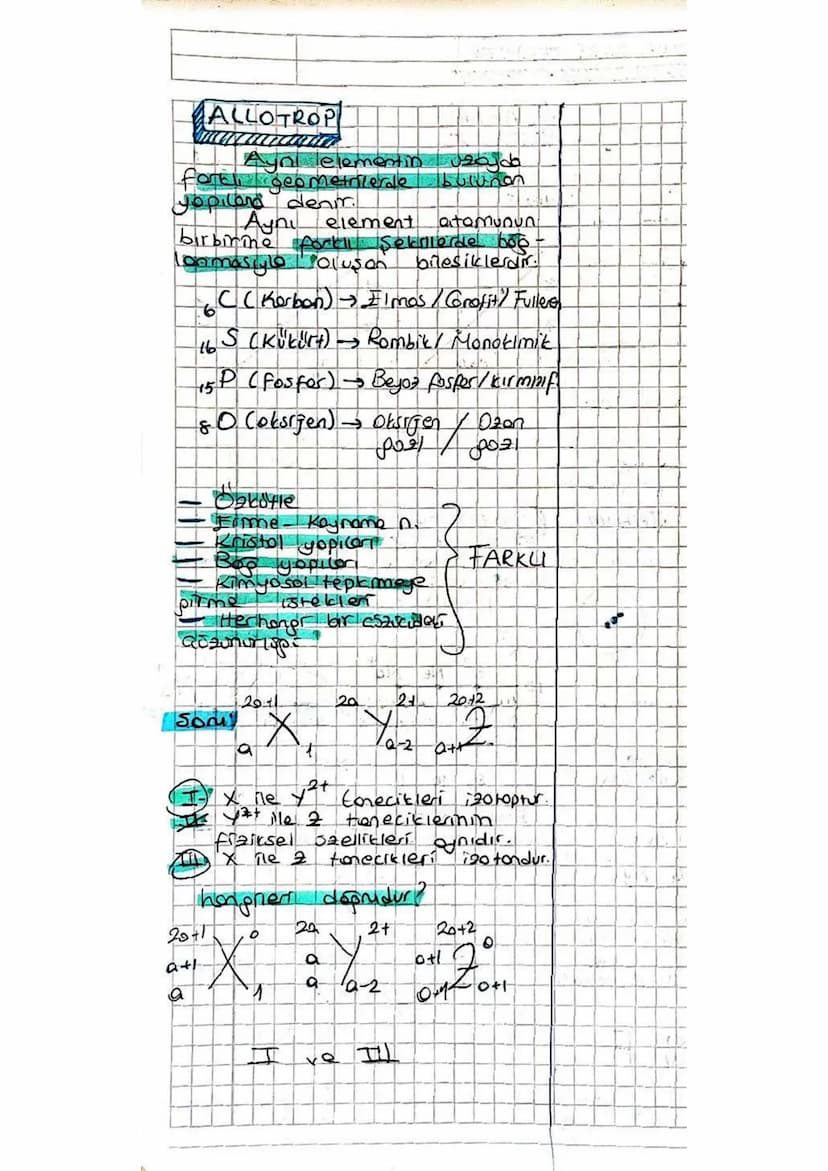 ALLOTROP
Aynı elementin uzayda
farklı geometrilerde bulunan
yapılara denir.
Aynı element atomunun
birbirine farklı şekillerde bağ-
lanmasıyla oluşan bileşiklerdir.
6C (Karbon) → Elmas / Grafit / Fulleren
16S (Kükürt) → Rombik / Monoklinik
15P (Fosfor) → Beyaz fosfor / kırmızı f
8O (oksijen) → Oksijen / Ozon
gazı gazı
— Özkütle
— Erime - Kaynama n.
— Kristal yapıları
— Bağ yapıları
— Kimyasal tepkimeye
girme istekleri
— Herhangi bir çözücüdeki
çözünürlüğü
FARKLI
2a+1 2a 2+ 2a+2
Soru X Y Z
a 1 a-2 a+1
I- X ile Y2+ tanecikleri izotoptur.
II- Y2+ ile Z taneciklerinin
fiziksel özellikleri aynıdır.
III- X ile Z tanecikleri izotondur.
hangileri doğrudur?
2a+1 0 2a 2+ 2a+2 0
a+1 X a Y a+1 Z
a 1 a a-2 a+1 a+1
I ve III